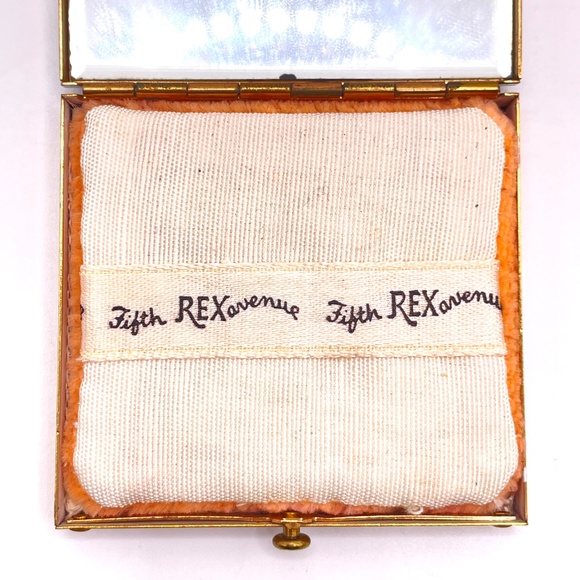 Fifth REX avenue Fifth REX avenue